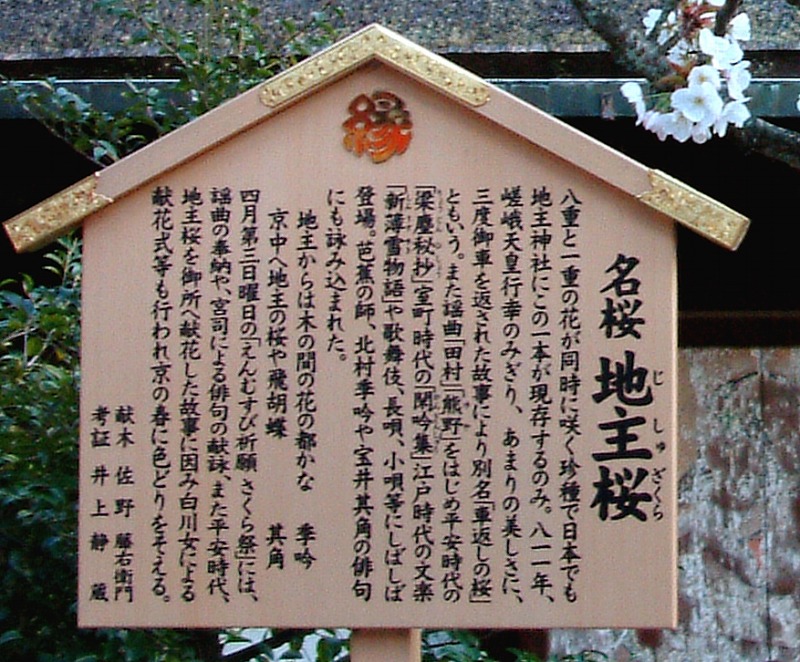 縁
名桜 地主桜
じ しゅ ざくら
八重と一重の花が同時に咲く珍種で日本でも
地主神社にこの一本が現存するのみ。八一一年、
嵯峨天皇行幸のみぎり、あまりの美しさに、
三度御車を返された故事により別名「車返しの桜」
ともいう。また謡曲「田村」「熊野」をはじめ平安時代の
「梁塵秘抄」室町時代の「閑吟集」江戸時代の文楽
「新薄雪物語」や歌舞伎、長唄、小唄等にしばしば
登場。芭蕉の師、北村季吟や宝井其角の俳句
にも詠み込まれた。
地主からは木の間の花の都かな 季吟
京中へ地主の桜や飛胡蝶 其角
四月第三日曜日の「えんむすび祈願 さくら祭」には、
謡曲の奉納や、宮司による俳句の献詠、また平安時代、
地主桜を御所へ献花した故事に因み白川女による
献花式等も行われ京の春に色どりをそえる。
献木 佐野 藤右衛門
考証 井上 静蔵